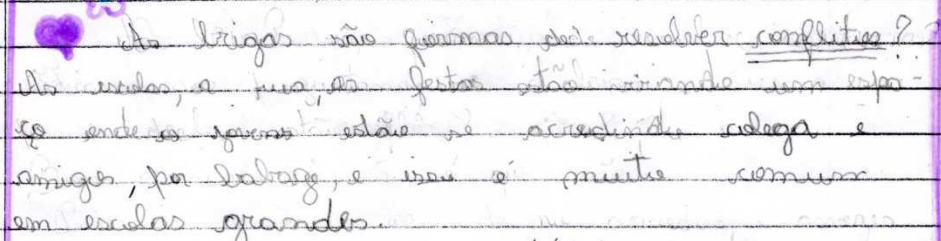 As brigas são formas de resolver conflitos?
As escolas, a rua, as festas estão virando um espa-
ço onde os jovens estão se acredindo colega e
amigos, por bobage, e isso é muito comum
em escolas grandes.